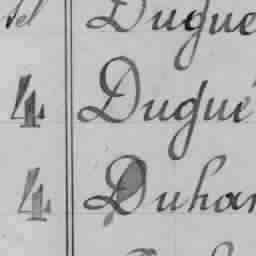 Dugue
4 Dugué
4 Duhar